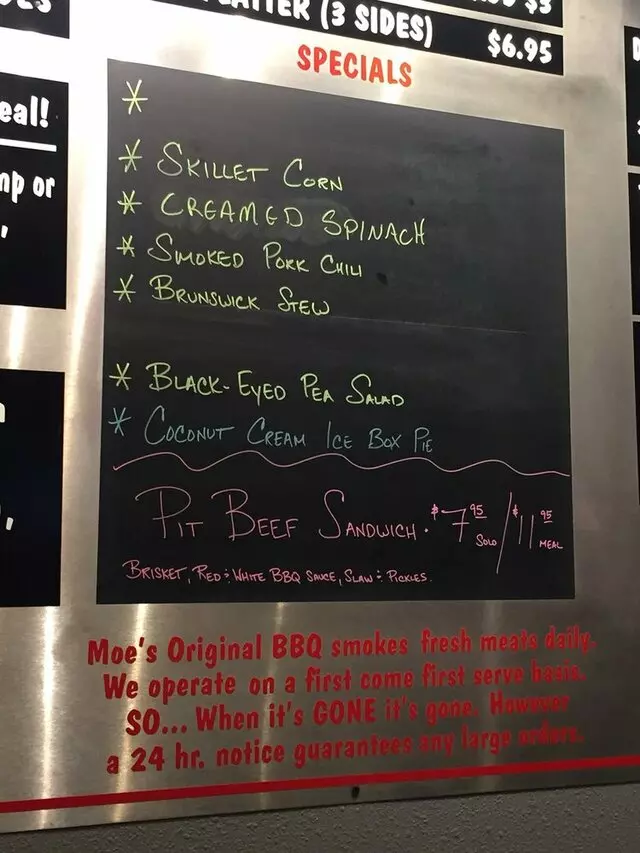 (3 SIDES) $6.95
$3
SPECIALS
eal!
or
*
* SKILLET CORN
* CREAMED SPINACH
* SMOKED PORK CHILI
* BRUNSWICK STEW
* BLACK-EYED PEA SALAD
* COCONUT CREAM ICE BOX PIE
PIT BEEF SANDWICH. $7.95 SOLO / $11.95 MEAL
BRISKET, RED & WHITE BBQ SAUCE, SLAW & PICKLES.
Moe's Original BBQ smokes fresh meats daily.
We operate on a first come first serve basis.
SO... When it's GONE it's gone. However
a 24 hr. notice guarantees any large orders.